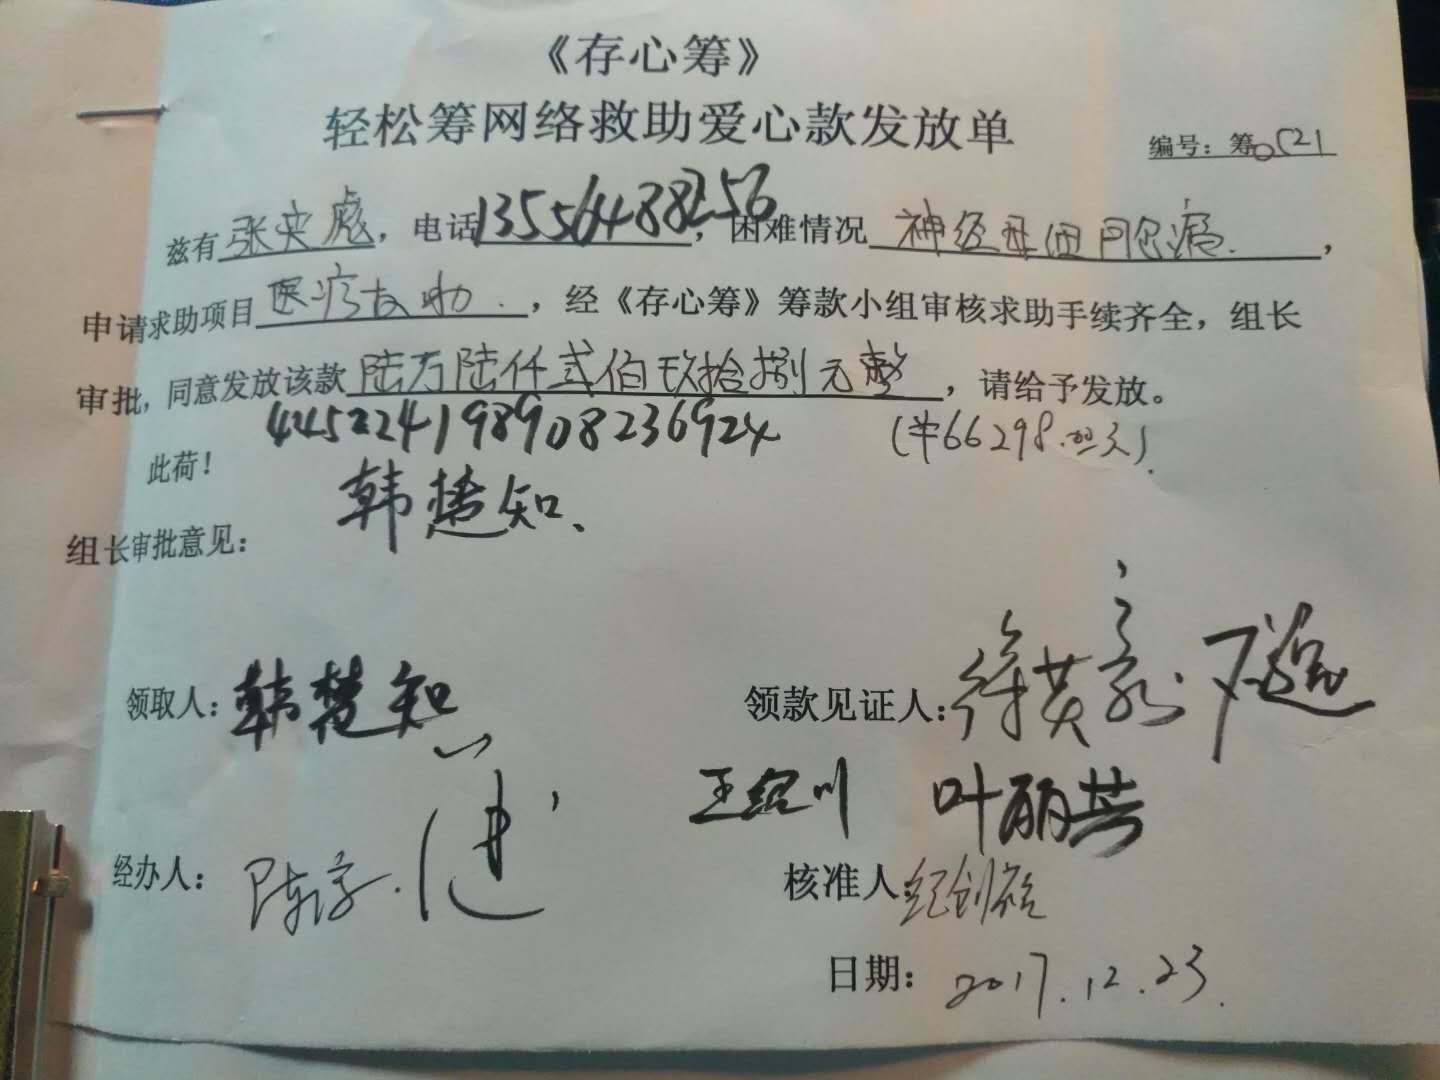 《存心筹》
轻松筹网络救助爱心款发放单
编号：筹0521
兹有张央彪，电话13556488256，困难情况神经母细胞瘤.，
申请求助项目医疗救助.，经《存心筹》筹款小组审核求助手续齐全，组长
审批，同意发放该款陆万陆仟贰佰玖拾捌元整，请给予发放。
445224198908236924 (¥66298.00元).
此荷！
韩楚知、
组长审批意见：
领取人：韩楚知 领款见证人：
王绍川 叶丽芸
经办人：陈 核准人
日期：2017.12.23.